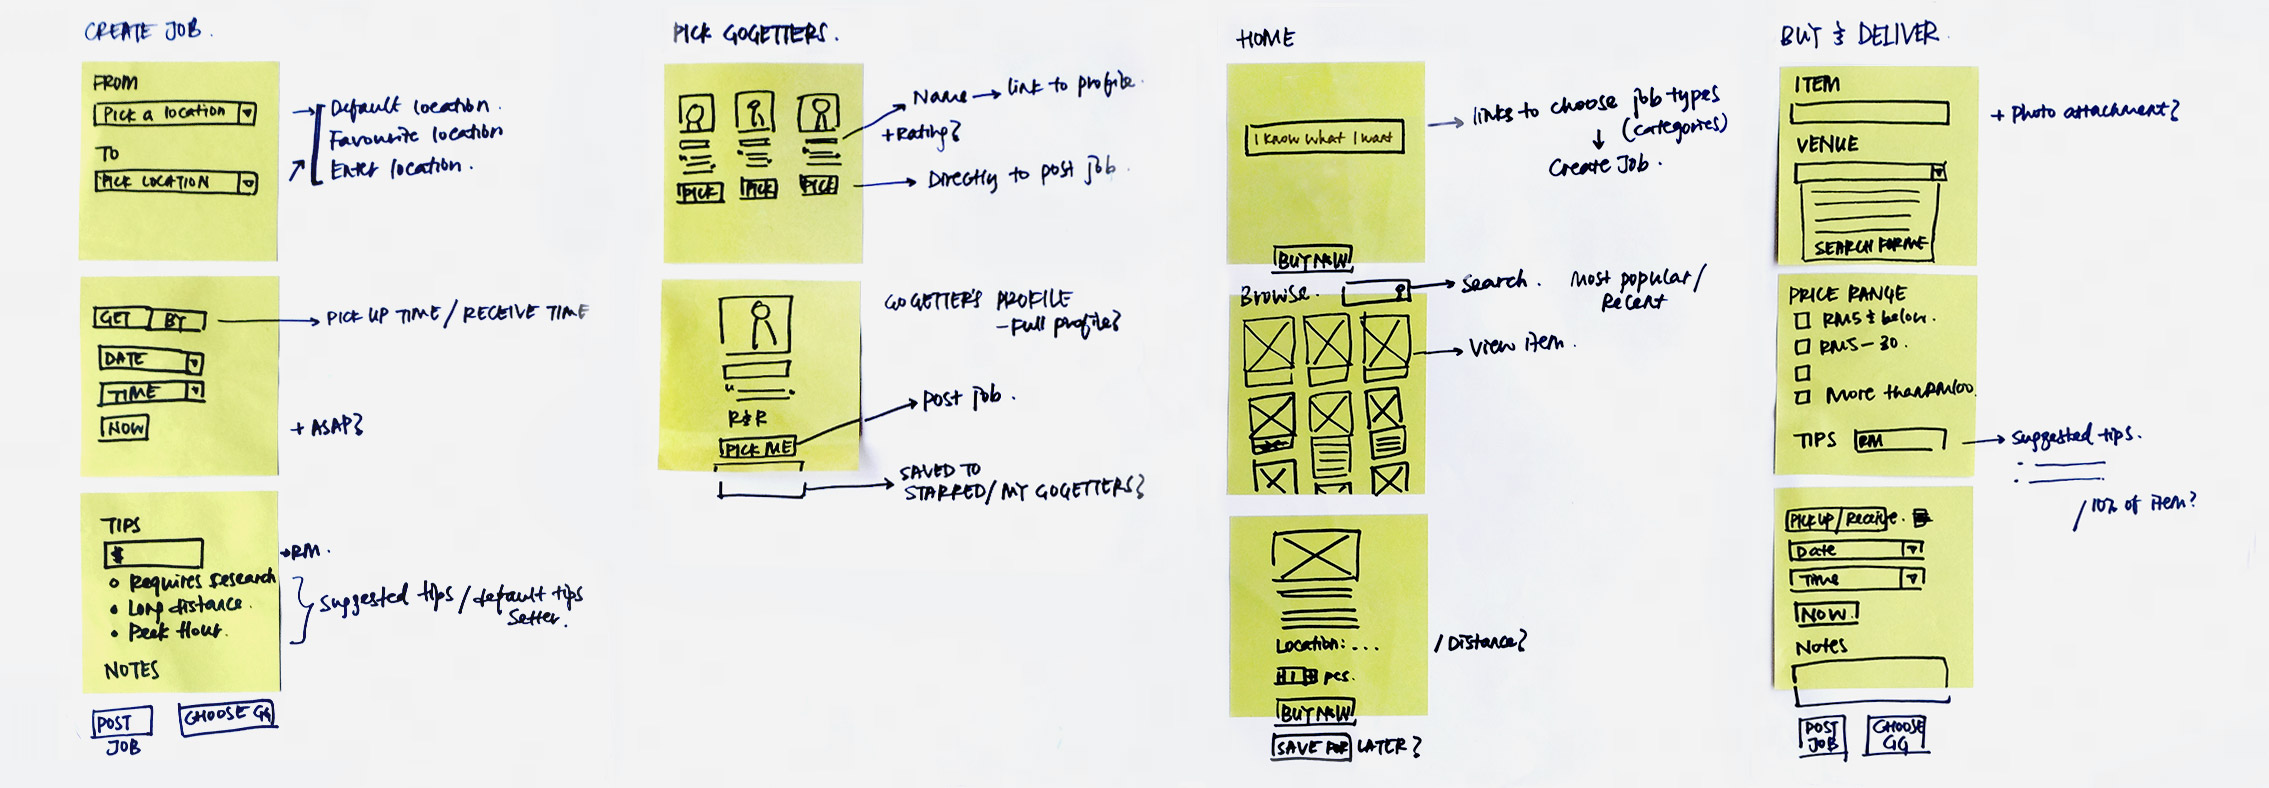 CREATE JOB.
FROM
PICK A LOCATION
TO
PICK LOCATION
Default location.
Favourite location
Enter location.
GET BY
DATE
TIME
NOW
PICK UP TIME / RECEIVE TIME
+ ASAP?
TIPS
$
RM.
Requires research
Long distance.
Peak Hour.
Suggested tips / default tips
Setter.
NOTES
POST
JOB
CHOOSE GG
PICK GOGETTERS.
PICK PICK PICK
Name → link to profile.
+ Rating?
Directly to post job.
GOGETTER'S PROFILE
- Full profile?
R&R
PICK ME
Post job.
SAVED TO
STARRED / MY GOGETTERS?
HOME
I know what I want
links to choose job types
(categories)
Create Job.
BUY NOW
Browse.
Search.
Most popular /
Recent
View item.
Location: ...
/ Distance?
1 + pcs.
BUY NOW
SAVE FOR LATER?
BUY & DELIVER.
ITEM
+ Photo attachment?
VENUE
SEARCH FOR ME
PRICE RANGE
RM5 & below.
RM5 - 30.
More than RM100.
TIPS RM
Suggested tips.
/ 10% of item?
PICK UP / Receive.
Date
Time
NOW.
Notes
POST
JOB
CHOOSE
GG